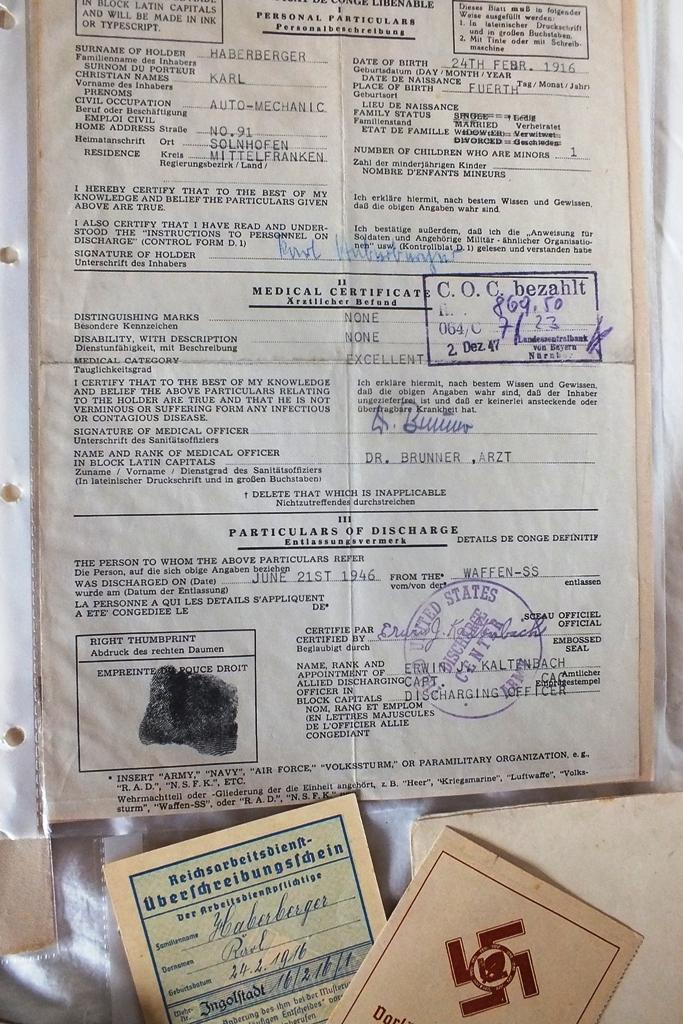 IN BLOCK LATIN CAPITALS
AND WILL BE MADE IN INK
OR TYPESCRIPT.
DE CONGE LIBENABLE
I
PERSONAL PARTICULARS
Personalbeschreibung
Dieses Blatt muß in folgender
Weise ausgefüllt werden:
1. In lateinischer Druckschrift
und in großen Buchstaben.
2. Mit Tinte oder mit Schreib-
maschine
SURNAME OF HOLDER HABERBERGER
Familienname des Inhabers
SURNOM DU PORTEUR
CHRISTIAN NAMES KARL
Vorname des Inhabers
PRENOMS
CIVIL OCCUPATION AUTO-MECHANIC
Beruf oder Beschäftigung
EMPLOI CIVIL
HOME ADDRESS Straße NO.91
Heimatanschrift Ort SOLNHOFEN
RESIDENCE Kreis MITTELFRANKEN
Regierungsbezirk / Land /
DATE OF BIRTH 24TH FEBR. 1916
Geburtsdatum (DAY / MONTH / YEAR
DATE DE NAISSANCE Tag / Monat / Jahr)
PLACE OF BIRTH FUERTH
Geburtsort
LIEU DE NAISSANCE
FAMILY STATUS SINGLE † Ledig
Familienstand MARRIED Verheiratet
ETAT DE FAMILLE WIDOWER Verwitwet
DIVORCED Geschieden
NUMBER OF CHILDREN WHO ARE MINORS 1
Zahl der minderjährigen Kinder
NOMBRE D'ENFANTS MINEURS
I HEREBY CERTIFY THAT TO THE BEST OF MY
KNOWLEDGE AND BELIEF THE PARTICULARS GIVEN
ABOVE ARE TRUE.
Ich erkläre hiermit, nach bestem Wissen und Gewissen,
daß die obigen Angaben wahr sind.
I ALSO CERTIFY THAT I HAVE READ AND UNDER-
STOOD THE "INSTRUCTIONS TO PERSONNEL ON
DISCHARGE" (CONTROL FORM D. 1)
Ich bestätige außerdem, daß ich die „Anweisung für
Soldaten und Angehörige Militär - ähnlicher Organisatio-
nen" usw. (Kontrollblatt D. 1) gelesen und verstanden habe
SIGNATURE OF HOLDER Karl Haberberger
Unterschrift des Inhabers
II
MEDICAL CERTIFICATE
Ärztlicher Befund
C. O. C. bezahlt
869,50
064/C 7/23
2. Dez. 47
Landeszentralbank
von Bayern
Nürnb
DISTINGUISHING MARKS NONE
Besondere Kennzeichen
DISABILITY, WITH DESCRIPTION NONE
Dienstunfähigkeit, mit Beschreibung
MEDICAL CATEGORY EXCELLENT
Tauglichkeitsgrad
I CERTIFY THAT TO THE BEST OF MY KNOWLEDGE
AND BELIEF THE ABOVE PARTICULARS RELATING
TO THE HOLDER ARE TRUE AND THAT HE IS NOT
VERMINOUS OR SUFFERING FORM ANY INFECTIOUS
OR CONTAGIOUS DISEASE.
Ich erkläre hiermit, nach bestem Wissen und Gewissen,
daß die obigen Angaben wahr sind, daß der Inhaber
ungezieferfrei ist und daß er keinerlei ansteckende oder
übertragbare Krankheit hat.
SIGNATURE OF MEDICAL OFFICER Dr. Brunner
Unterschrift des Sanitätsoffiziers
NAME AND RANK OF MEDICAL OFFICER
IN BLOCK LATIN CAPITALS DR. BRUNNER ,ARZT
Zuname / Vorname / Dienstgrad des Sanitätsoffiziers
(In lateinischer Druckschrift und in großen Buchstaben)
† DELETE THAT WHICH IS INAPPLICABLE
Nichtzutreffendes durchstreichen
III
PARTICULARS OF DISCHARGE
Entlassungsvermerk
DETAILS DE CONGE DEFINITIF
THE PERSON TO WHOM THE ABOVE PARTICULARS REFER
Die Person, auf die sich obige Angaben beziehen
WAS DISCHARGED ON (Date) JUNE 21ST 1946 FROM THE* WAFFEN-SS
wurde am (Datum der Entlassung) vom/von der* entlassen
LA PERSONNE A QUI LES DETAILS S'APPLIQUENT
A ETE' CONGEDIEE LE DE*
RIGHT THUMBPRINT
Abdruck des rechten Daumen
EMPREINTE DU POUCE DROIT
CERTIFIE PAR
CERTIFIED BY Erwin J. Kaltenbach
Beglaubigt durch
SCEAU OFFICIEL
OFFICIAL
EMBOSSED
SEAL
UNITED STATES
DISCHARGE
CENTER
NAME, RANK AND ERWIN J. KALTENBACH
APPOINTMENT OF
ALLIED DISCHARGING CAPT. CAC
OFFICER IN DISCHARGING OFFICER
BLOCK CAPITALS
NOM, RANG ET EMPLOM
(EN LETTRES MAJUSCULES
DE L'OFFICIER ALLIE
CONGEDIANT
Amtlicher
Einprägestempel
* INSERT "ARMY," "NAVY", "AIR FORCE," "VOLKSSTURM," OR PARAMILITARY ORGANIZATION, e. g.,
"R. A. D.", "N. S. F. K.", ETC.
Wehrmachtteil oder -Gliederung der die Einheit angehört, z. B. "Heer", "Kriegsmarine", "Luftwaffe", "Volks-
sturm", "Waffen-SS", oder "R. A. D.", "N. S. F. K."
Reichsarbeitsdienst-
Überschreibungsschein
Der Arbeitsdienstpflichtige
Familienname Haberberger
Vornamen Karl
Geburtsdatum 24.2.1916
Wehr-
Nr. Ingolstadt 16/2 16/1
Änderung des ihm bei der Musterung